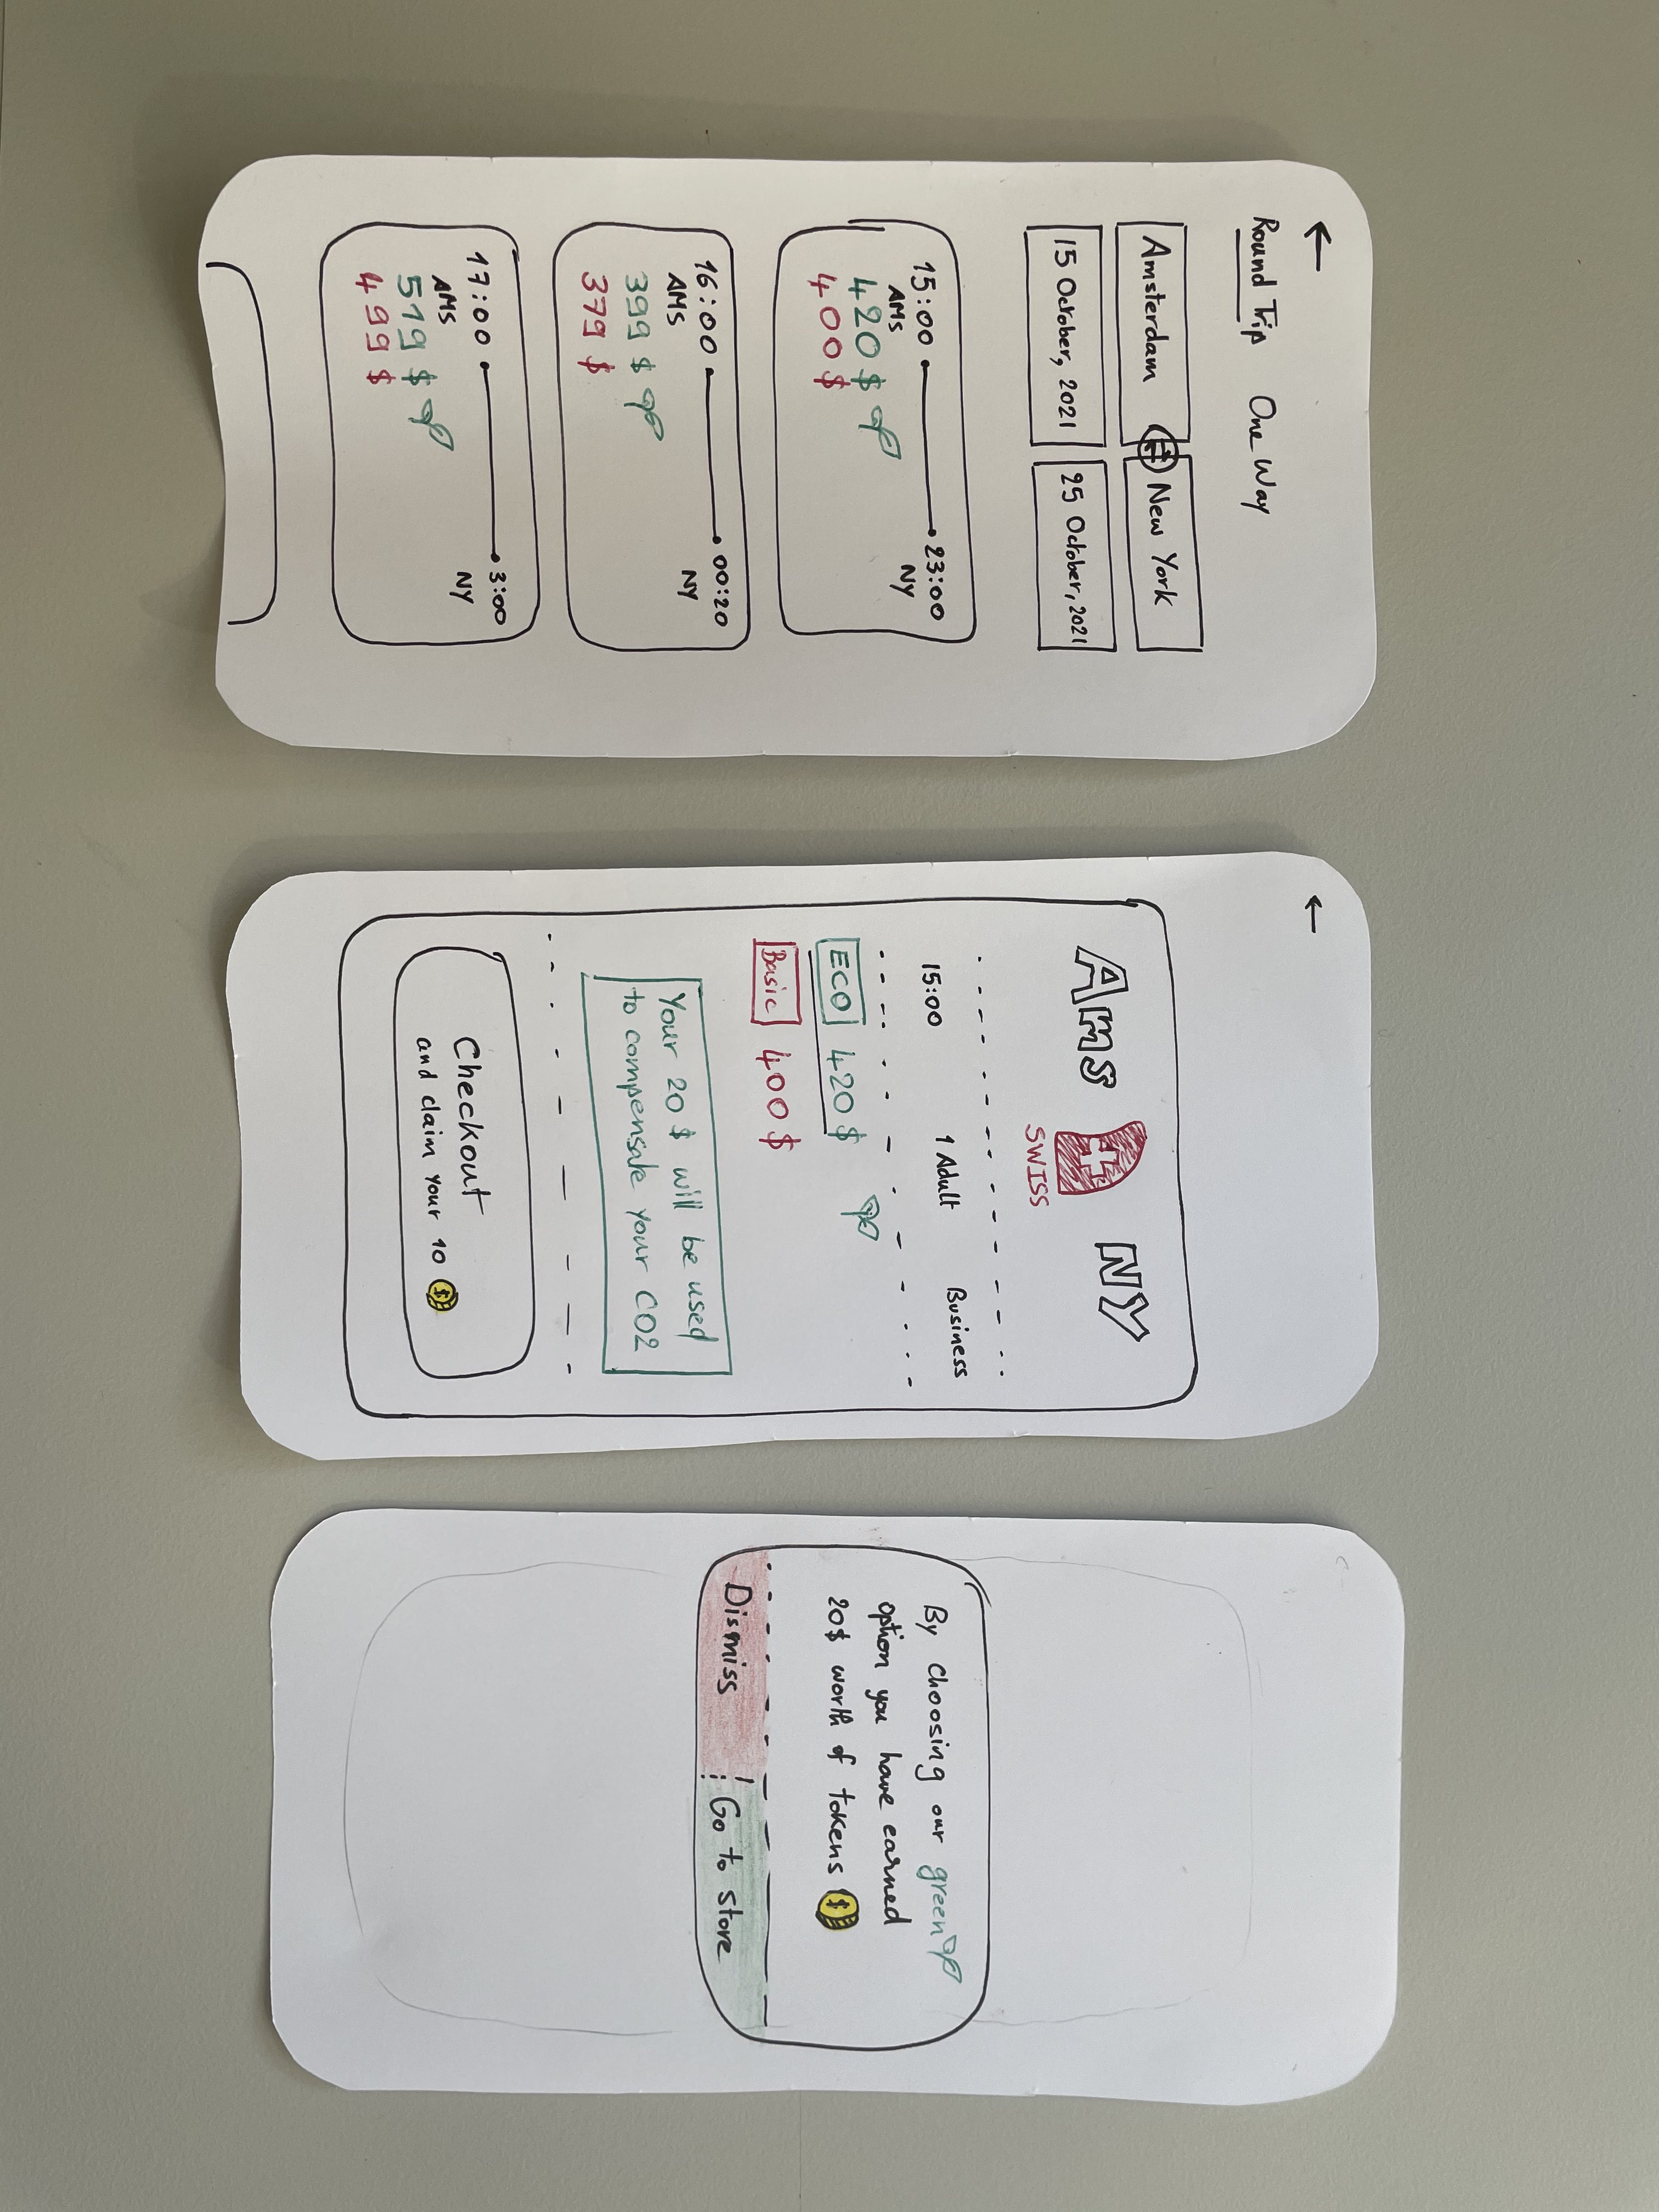 Round Trip One Way
Amsterdam New York
15 October, 2021 25 October, 2021
15:00 23:00
AMS NY
420 $
400 $
16:00 00:20
AMS NY
399 $
379 $
17:00 3:00
AMS NY
519 $
499 $
Ams NY
SWISS
15:00 1 Adult Business
ECO 420 $
Basic 400 $
Your 20 $ will be used
to compensate your CO2
Checkout
and claim your 10 $
By choosing our green
option you have earned
20$ worth of tokens $
Dismiss Go to store